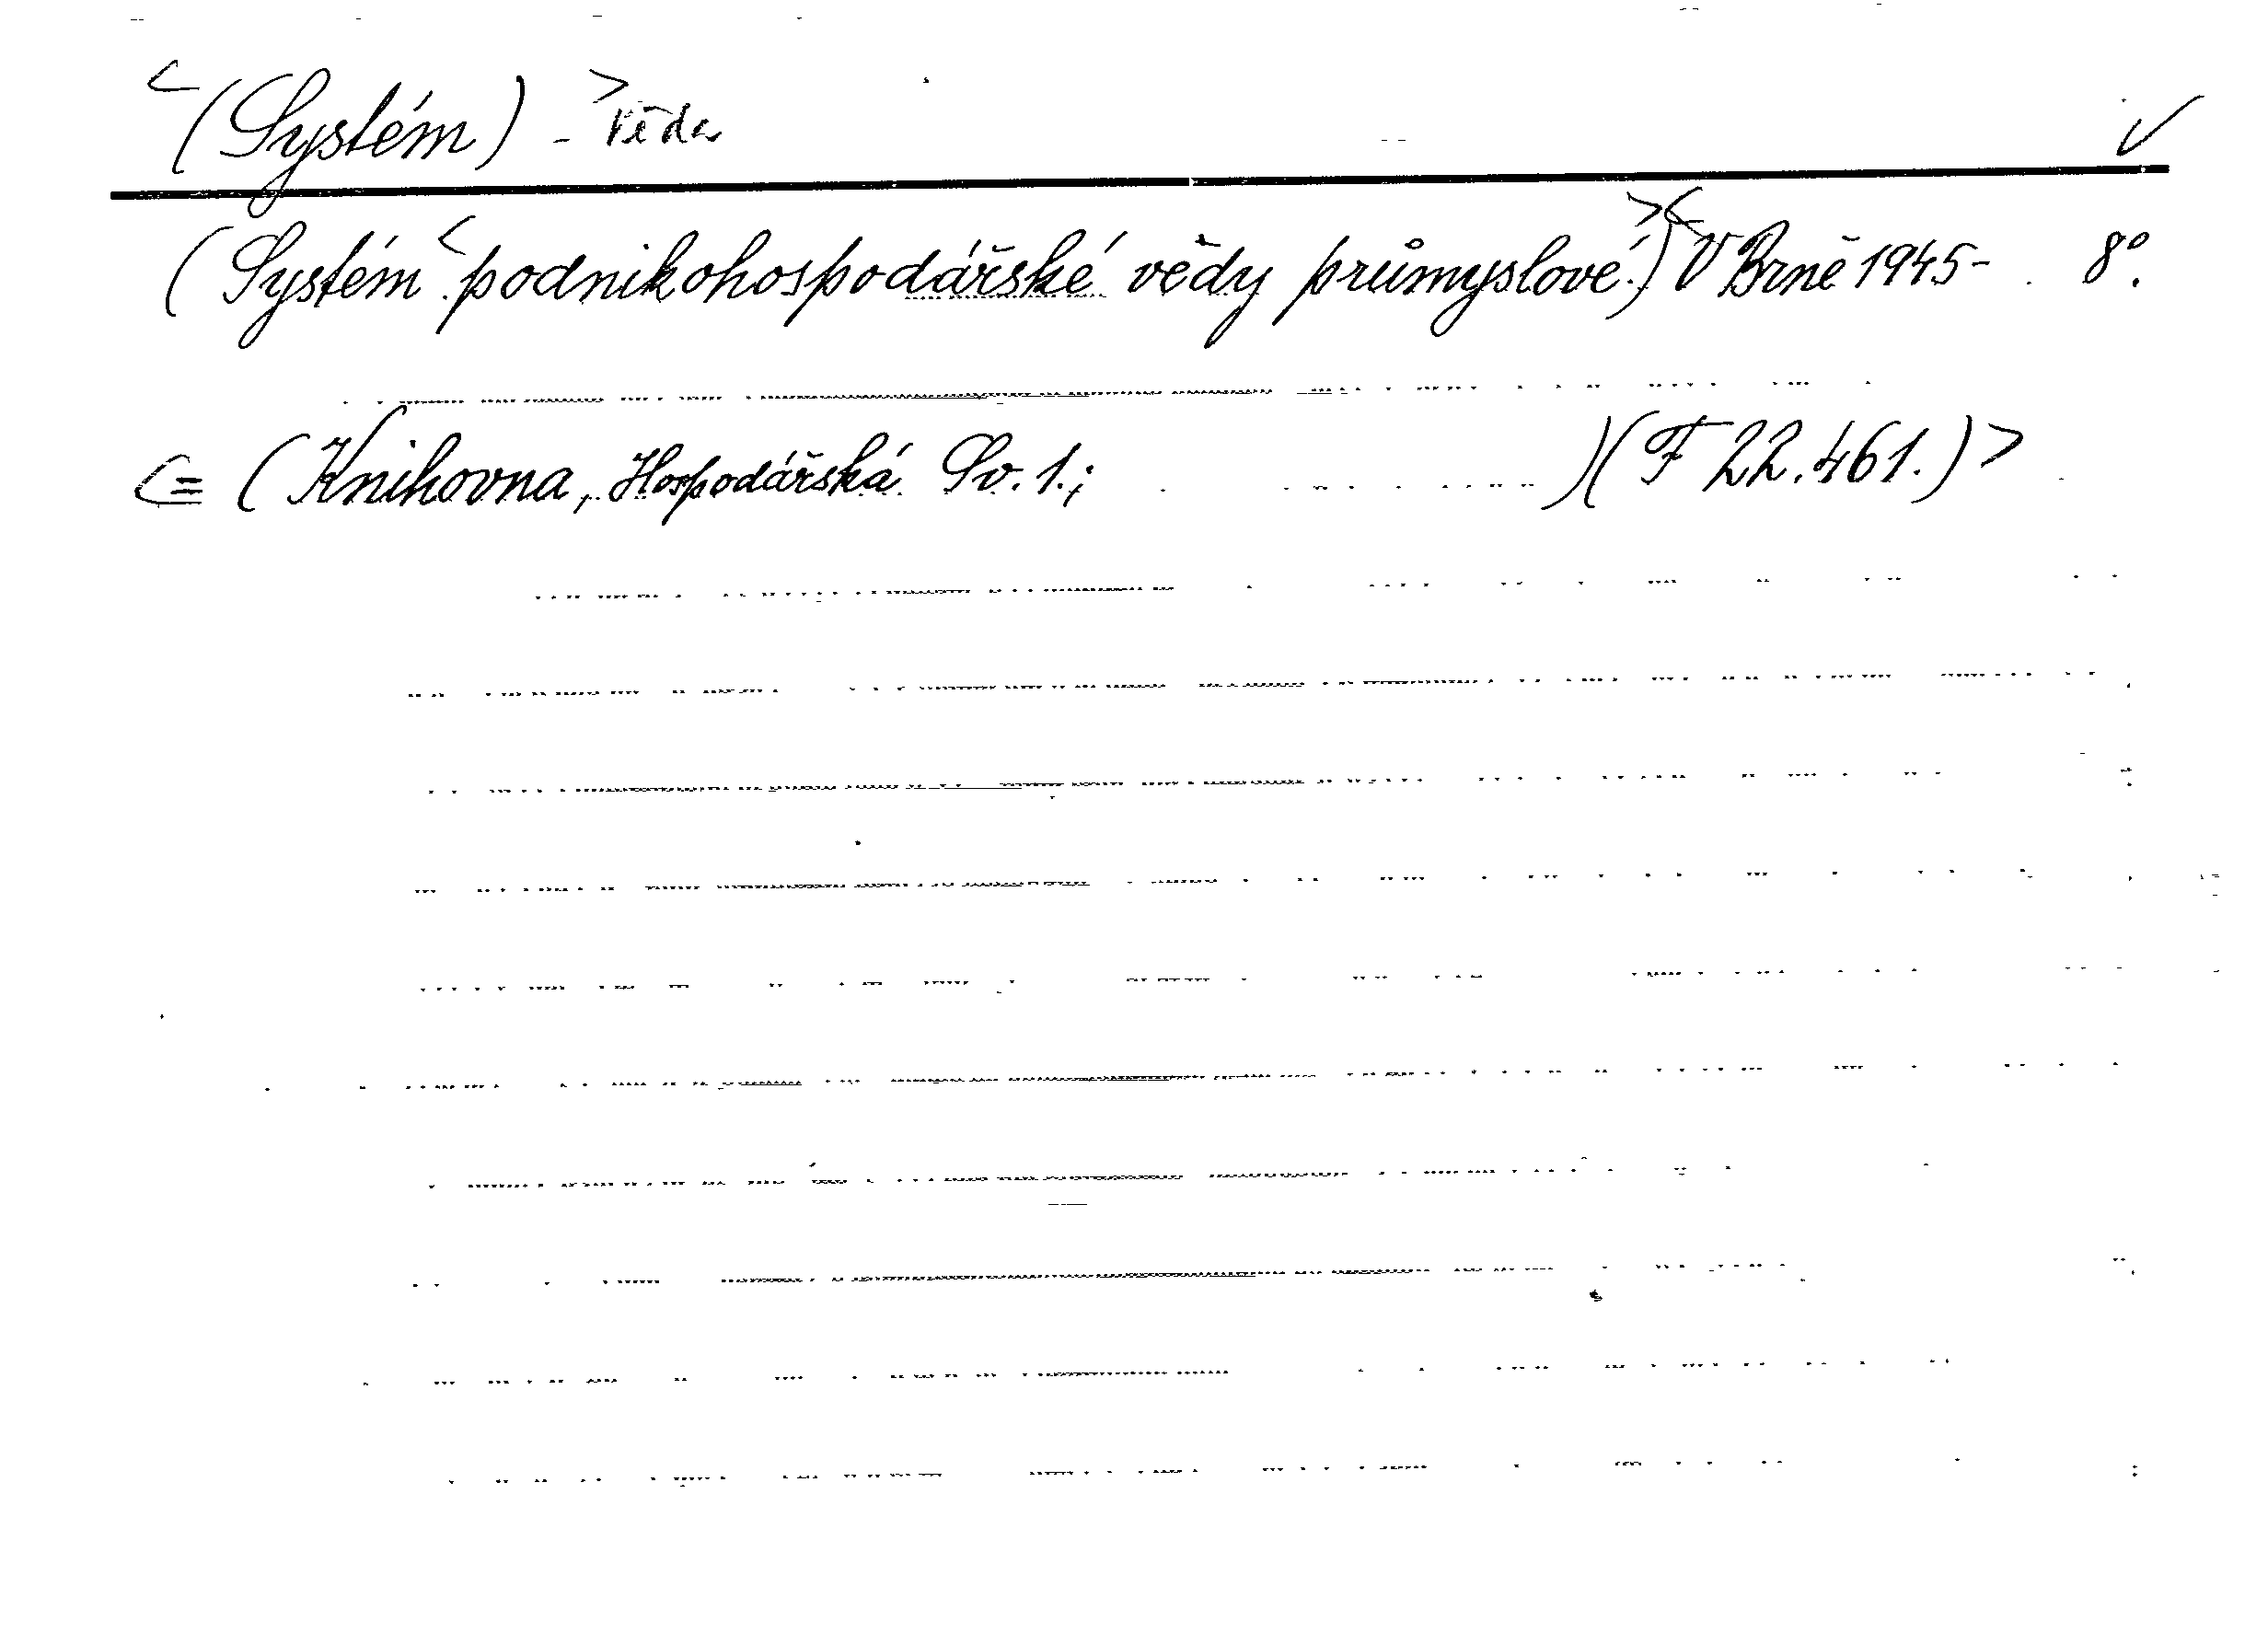 <(Systém)> - Věda ✓
(Systém <podnikohospodářské vědy průmyslové.)>< V Brně 1945- . 8°.
<= (Knihovna, Hospodářská Sv. 1.; )(F 22.461.)>